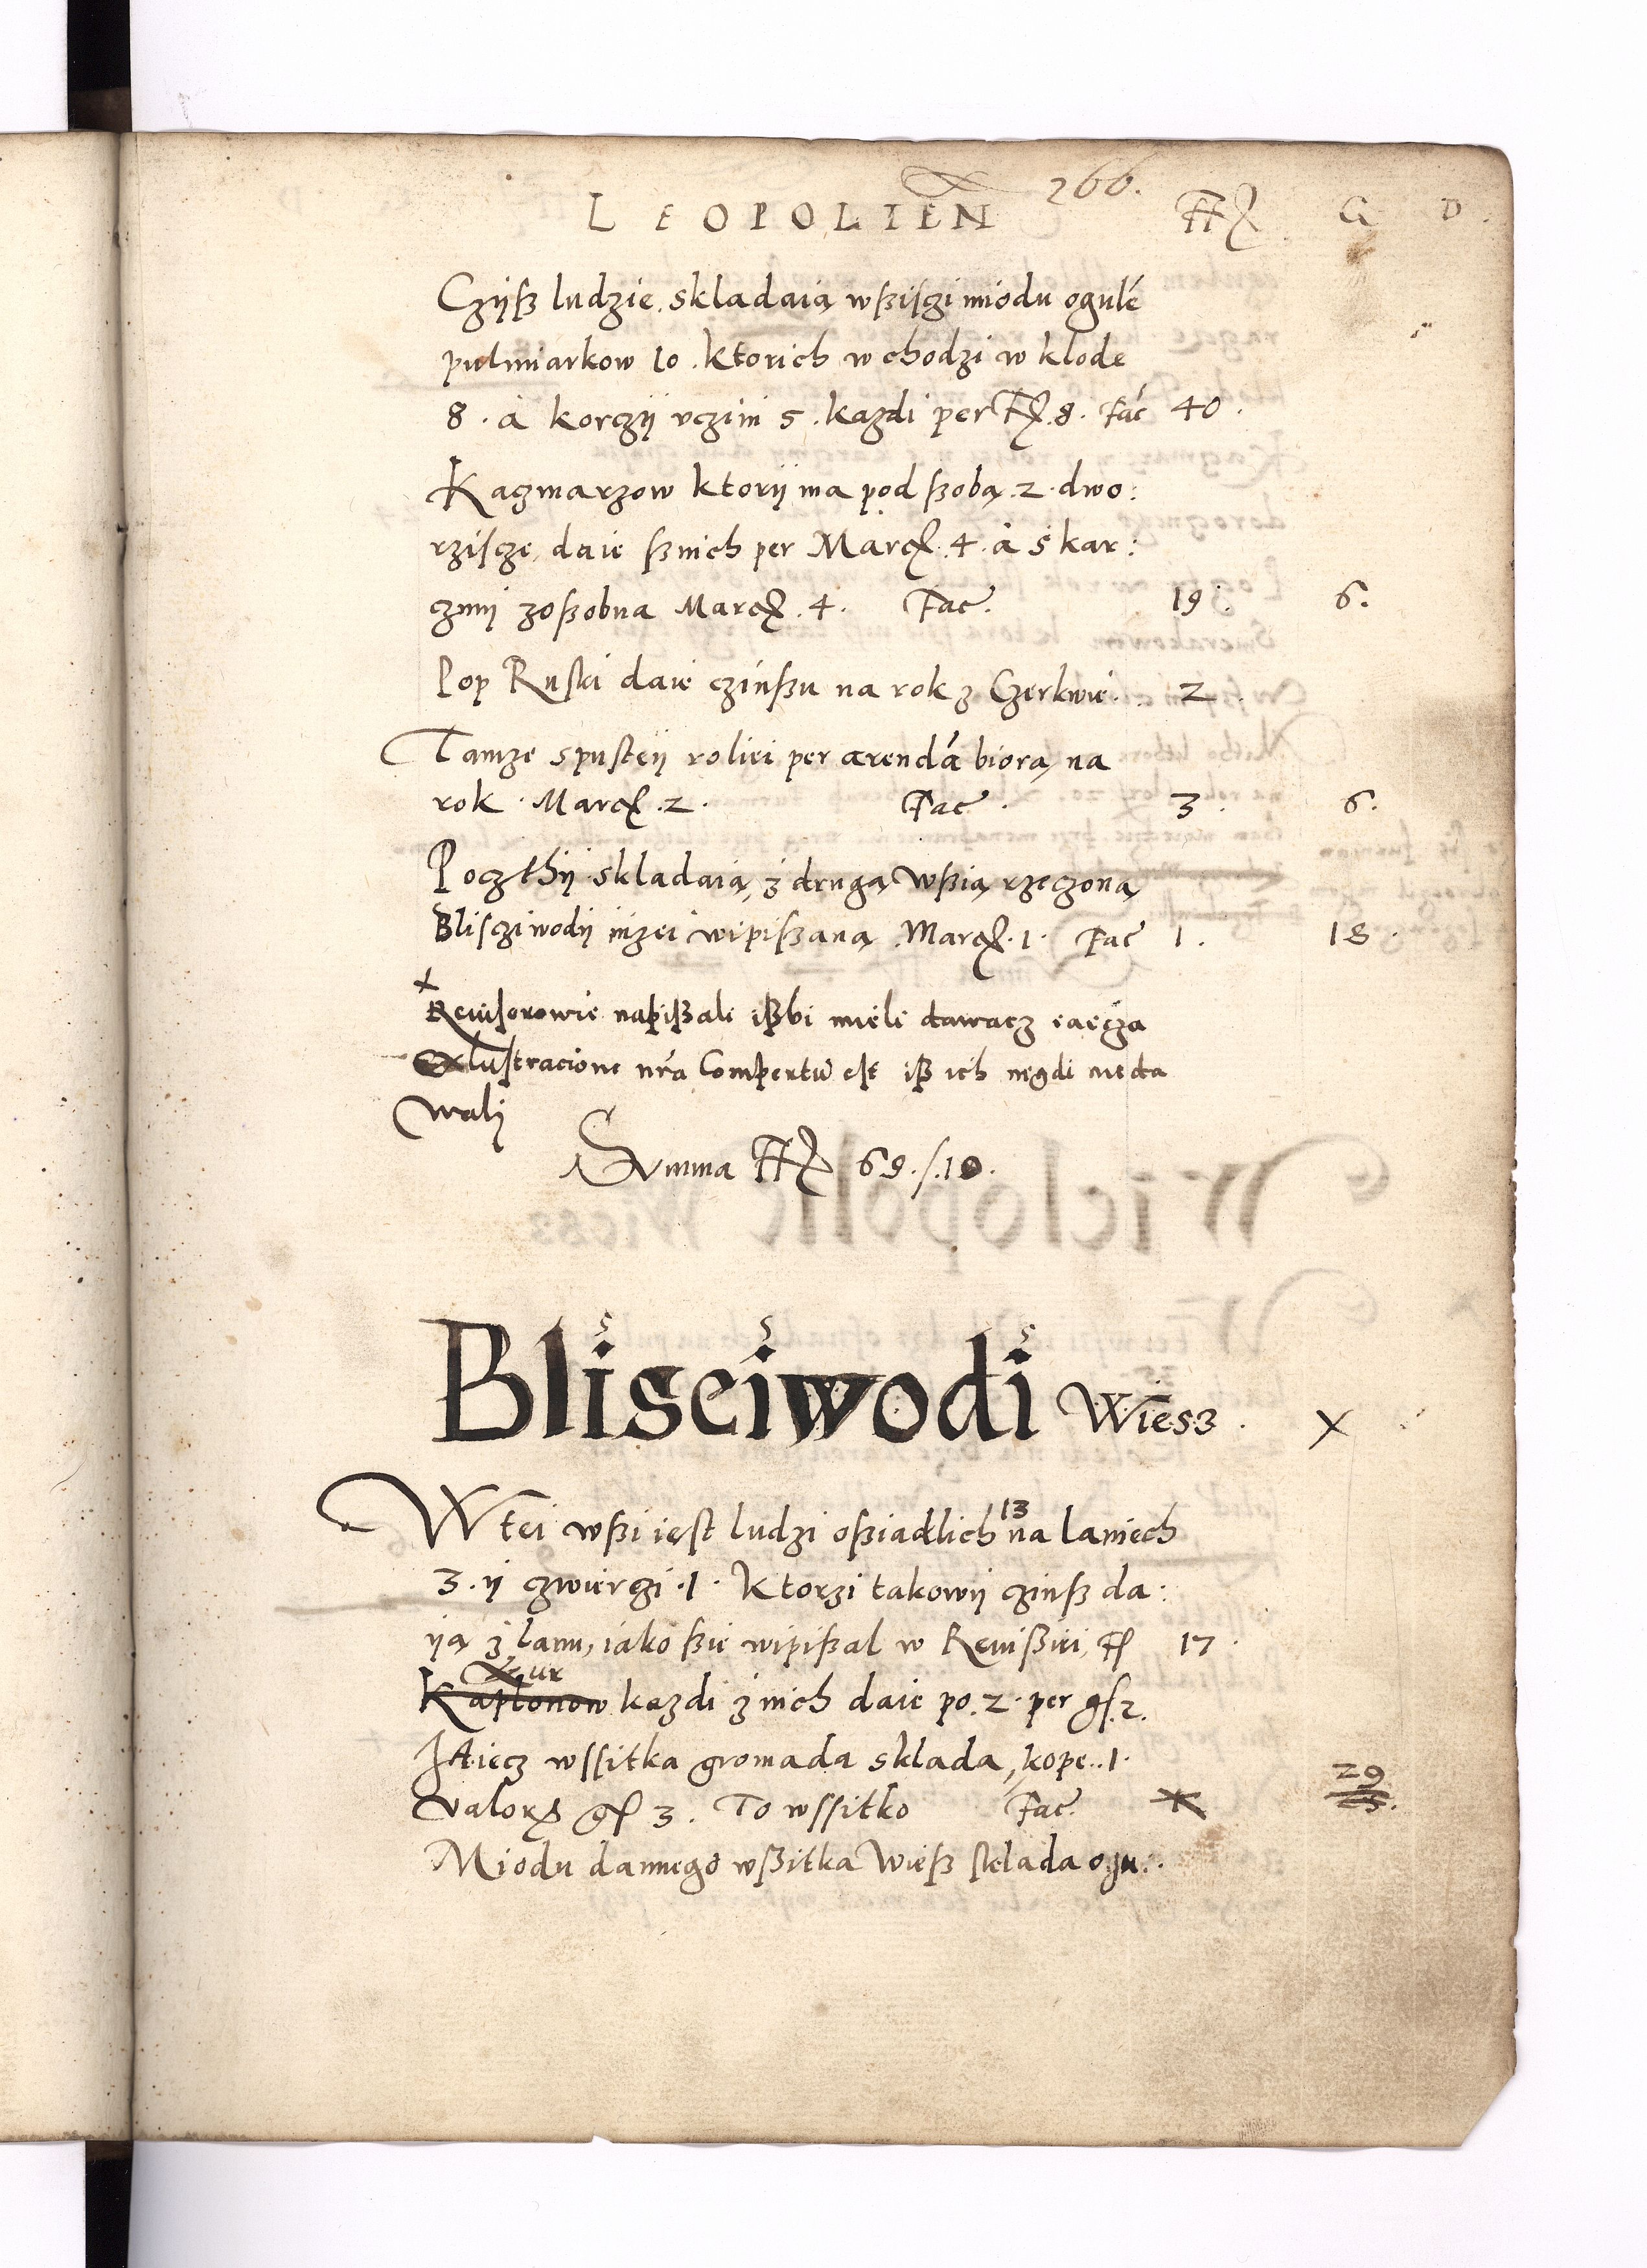 266.
LEOPOLIEN Fl G D.
Czijß ludzie skladaią wßisczi miodu ogulé
pulmiarkow 10. ktorich w chodzi w klode
8. à korczÿ vczini 5. kazdi per Fl. 8. Fac 40.
Kaczmarzow ktorÿ ma pod ßobą 2. dwo:
rziscze, daie ßnich per Marc. 4. à s kar:
czmÿ zoßobna Marc. 4. Fac. 19. 6.
Pop Ruski daie czinßu na rok z Czerkwie. 2.
Tamze spusteÿ roliei per arendą biorą na
rok. Marc. 2. Fac. 3. 6.
Poczthÿ skladaią z drugą wßią rzeczoną
Bliscziwodÿ nizei wipißaną Marc. 1. Fac 1. 18.
x
Reuisorowie napißali ißbi mieli dawacz
ex lustracione nra Compertu est iß ich nigdi nie da
walj
Summa Fl 69. /. 10.
Blisciwodi Wiesz. X
W tei wßi iest ludzi oßiadlich 13 na laniech
3. ÿ czwierczi. 1. Ktorzi takowÿ czinß da:
ÿą z lanu, iako ßie wipißal w Reuißiei, Fl 17.
Kur
Kaplonow kazdi z nich daie po. 2. per gl. 2.
JAiecz wssitka gromada sklada, kope. 1.
valor gl 3. To wssitko Fac. 29
Miodu dannego wßitka Wieß sklada ogu.